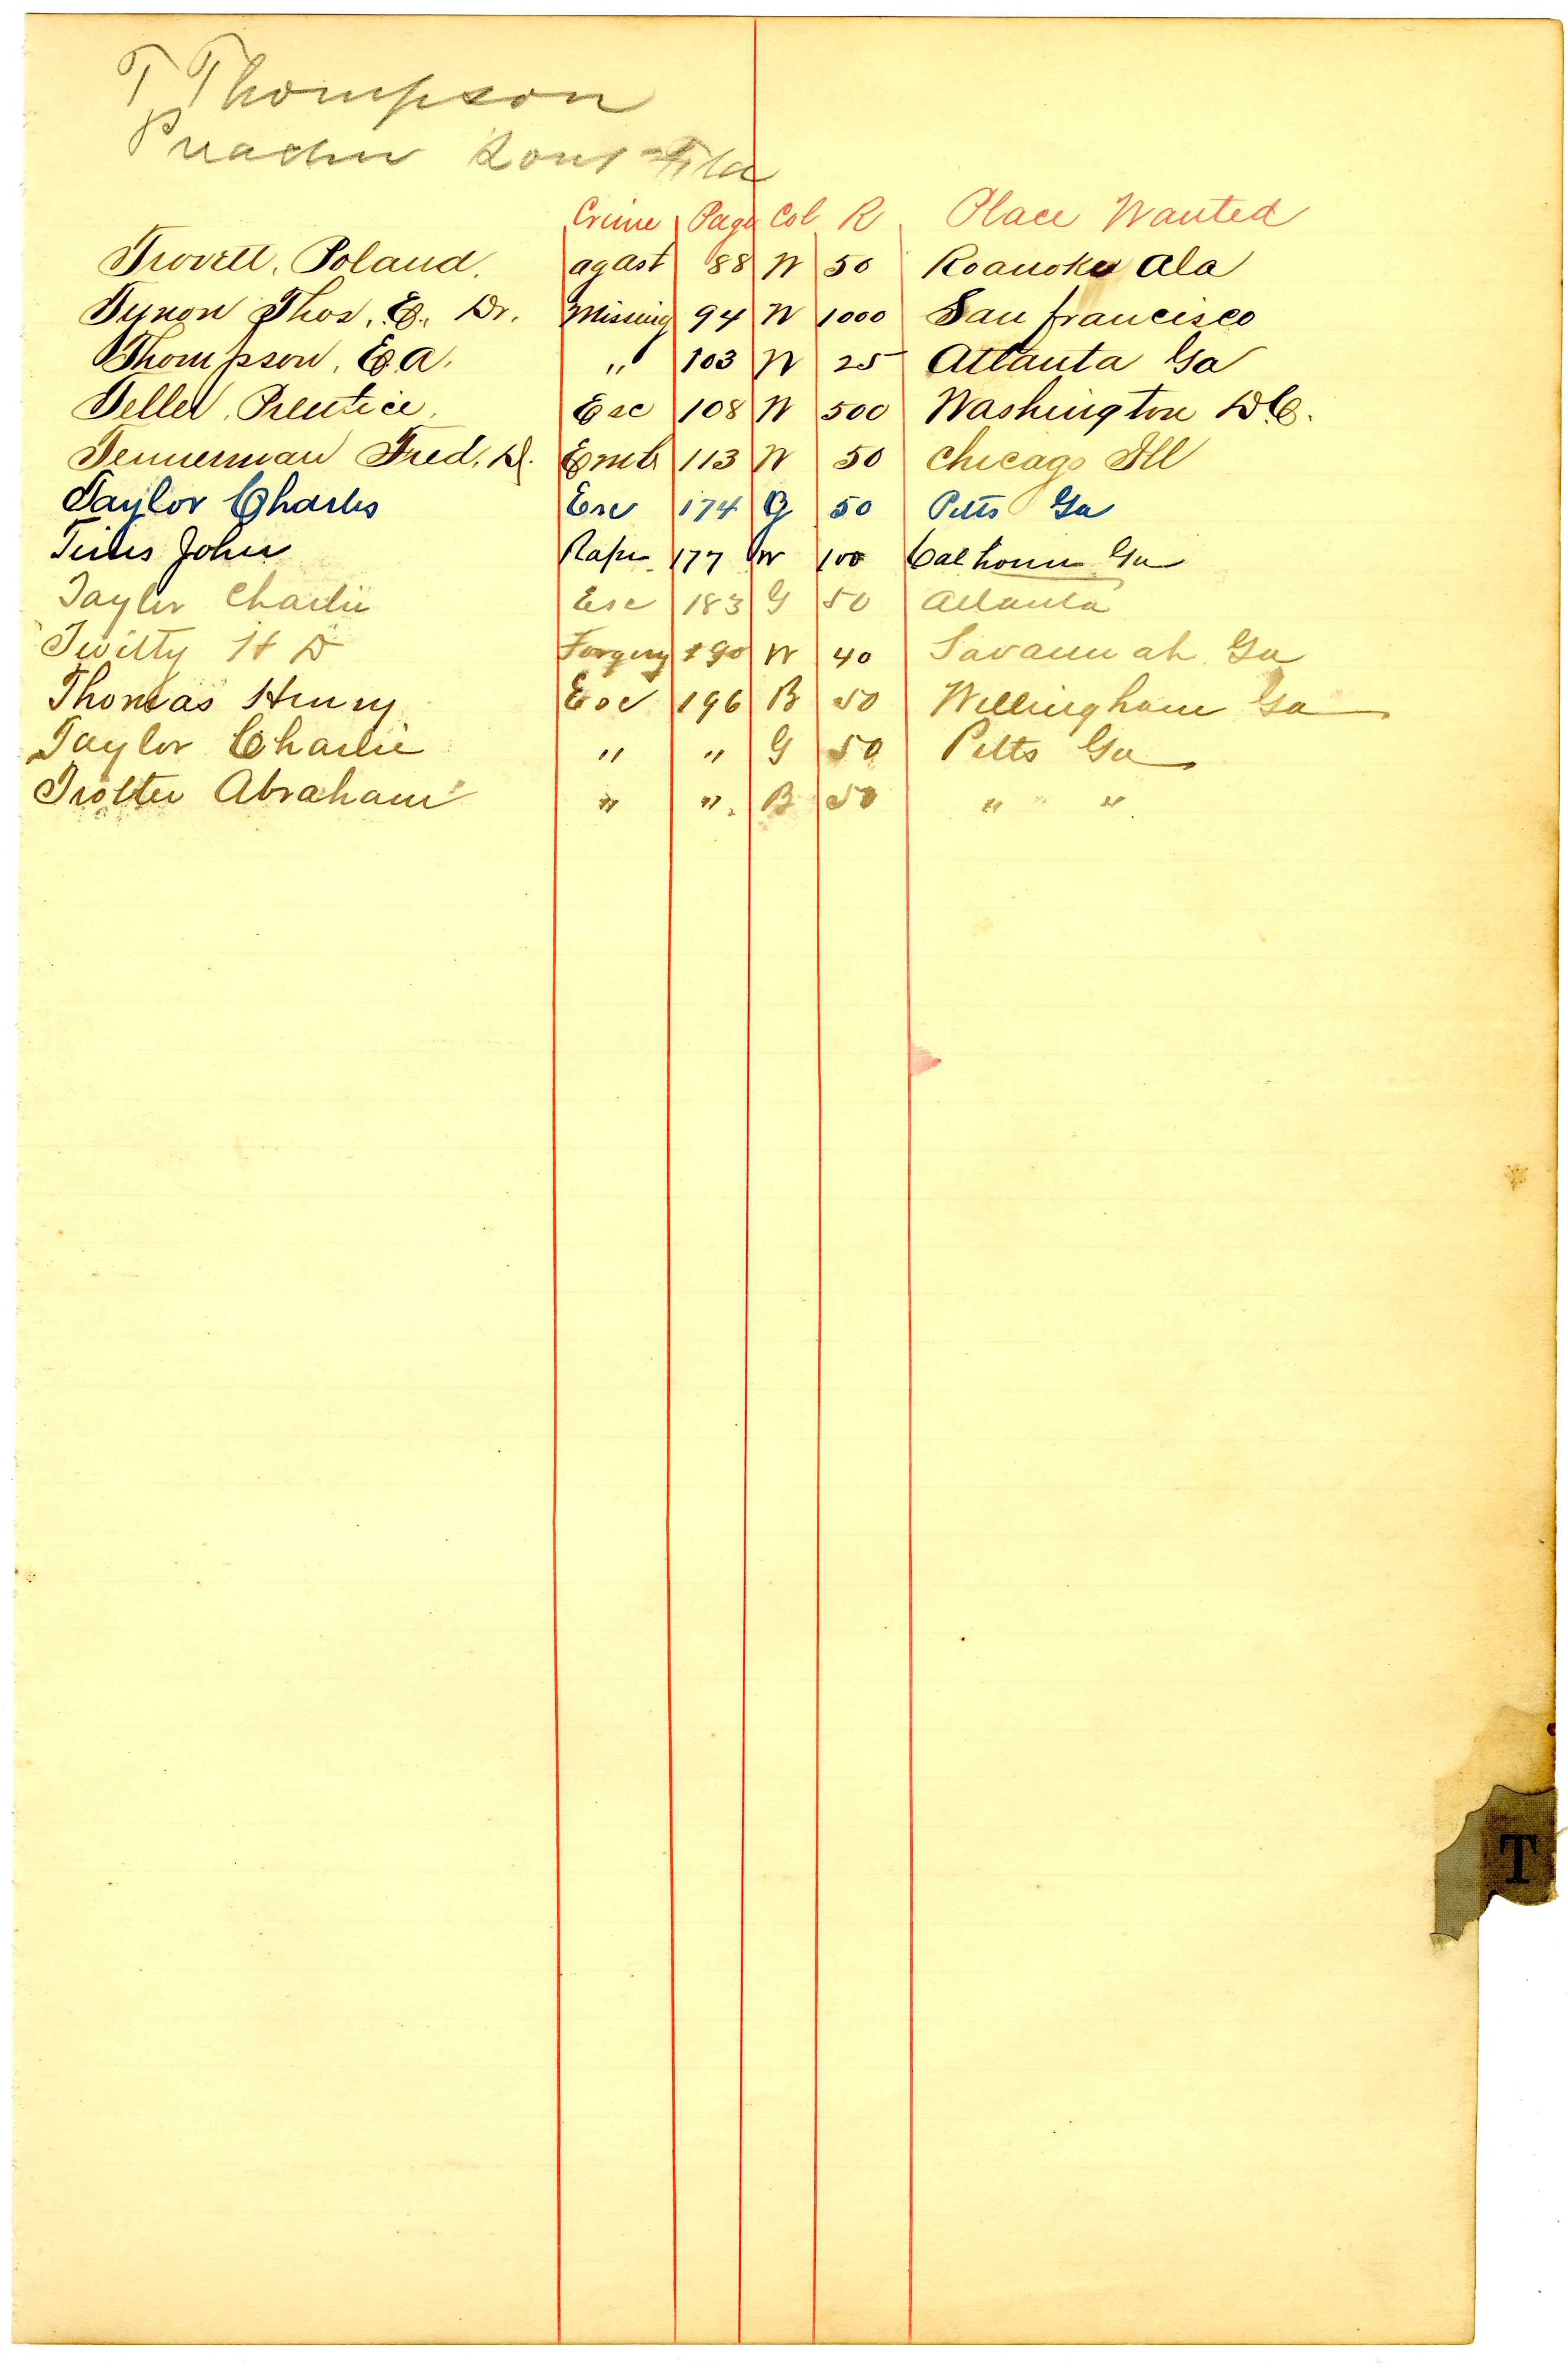 T Thompson
Preacher Fla
Crime Page Col R Place Wanted
Trovell, Poland. ag ast 88 W 50 Roanoke Ala
Tynon Thos, E. Dr. Missing 94 W 1000 San francisco
Thompson, E. A. " 103 W 25 Atlanta Ga
Teller, Prentice. Esc 108 W 500 Washington D C.
Tennerman Fred. D. Emb 113 W 50 Chicago Ill
Taylor Charles Esc 174 G 50 Pitts Ga
John Rape 177 W 100 Calhoun Ga
Taylor Charlie Esc 183 G 50 Atlanta
Twitty H D Forgery 190 W 40 Savannah Ga
Thomas Henry Esc 196 B 50 Willingham Ga
Taylor Charlie " " G 50 Pitts Ga
Trotter Abraham " ". B 50 " "
T